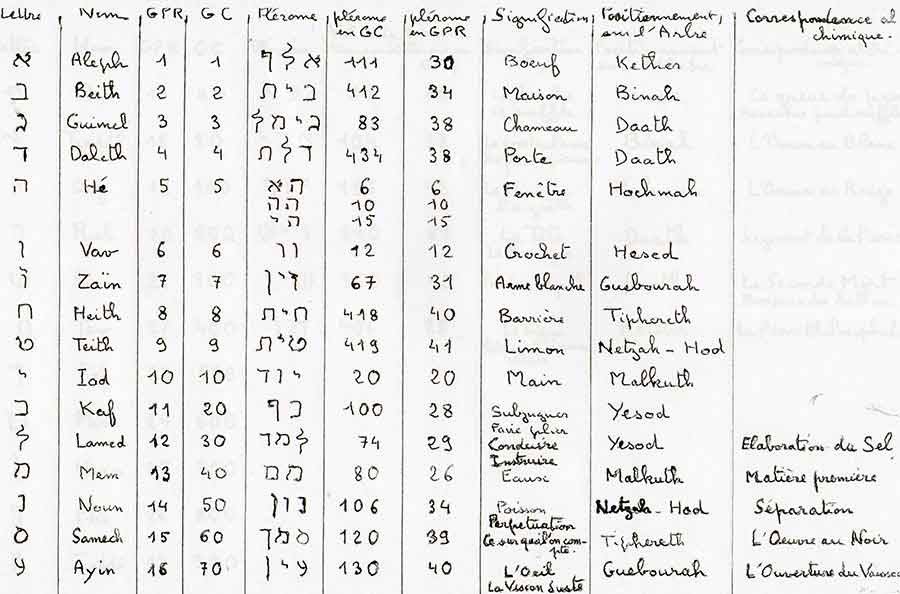 Lettre Nom GPR GC Plérome plérome en GC plérome en GPR Signification Positionnement sur l'Arbre Correspondance alchimique.
א Aleph 1 1 אלף 111 30 Boeuf Kether
ב Beith 2 2 בית 412 34 Maison Binah
ג Guimel 3 3 גימל 83 38 Chameau Daath
ד Daleth 4 4 דלת 434 38 Porte Daath
ה Hé 5 5 הא 6 6 Fenêtre Hochmah
הה 10 10
הי 15 15
ו Vav 6 6 וו 12 12 Crochet Hesed
ז Zaïn 7 7 זין 67 31 Arme blanche Guebourah
ח Heith 8 8 חית 418 40 Barrière Tiphereth
ט Teith 9 9 טית 419 41 Limon Netzah - Hod
י Iod 10 10 יוד 20 20 Main Malkuth
כ Kaf 11 20 כף 100 28 Subjuguer Yesod
Faire plier
ל Lamed 12 30 למד 74 29 Conduire Yesod Elaboration du Sel
Instruire
מ Mem 13 40 מם 80 26 Eaux Malkuth Matière première
נ Noun 14 50 נון 106 34 Poisson Netzah - Hod Séparation
Perpetuation
ס Samech 15 60 סמך 120 39 Ce sur quoi l'on compte. Tiphereth L'Oeuvre au Noir
ע Ayin 16 70 עין 130 40 L'Oeil Guebourah L'Ouverture du
La Vision Juste